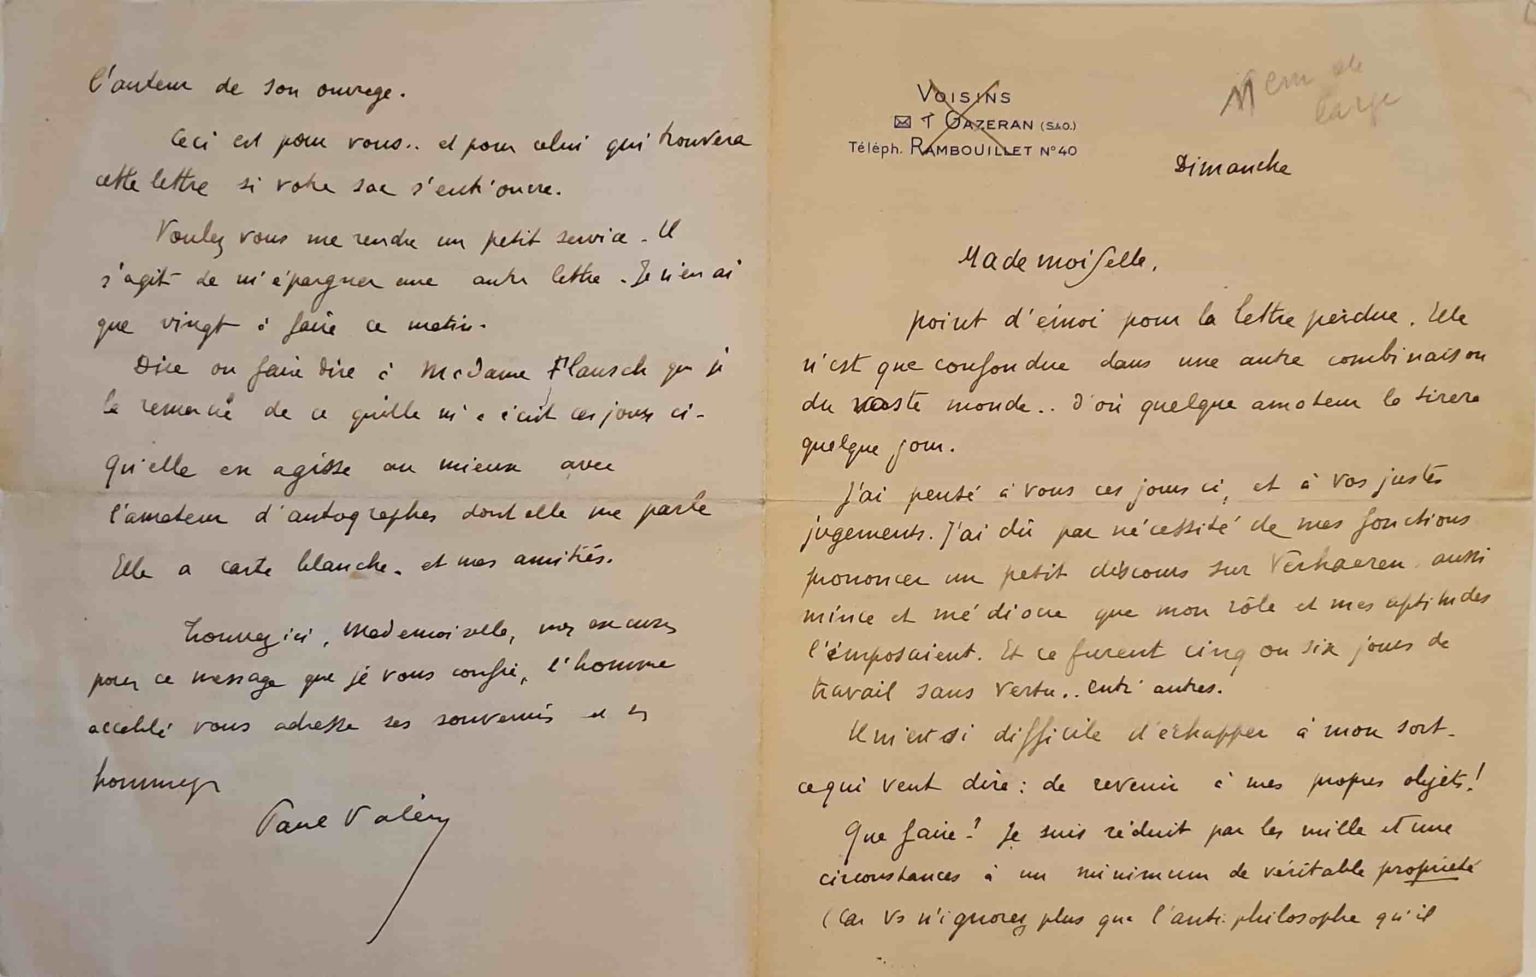 VOISINS
GAZERAN (S&O.)
Téléph. RAMBOUILLET N° 40
11 cm de
large
Dimanche
Mademoiselle,
point d'émoi pour la lettre perdue. Elle
n'est que confondue dans une autre combinaison
du vaste monde.. d'où quelque amateur la tirera
quelque jour.
J'ai pensé à vous ces jours ci, et à vos justes
jugements. J'ai dû par nécessité de mes fonctions
prononcer un petit discours sur Verhaeren aussi
mince et médiocre que mon rôle et mes aptitudes
l'imposaient. Et ce furent cinq ou six jours de
travail sans vertu.. entr'autres.
Il m'est si difficile d'échapper à mon sort-
ce qui veut dire : de revenir à mes propres objets!
Que faire? Je suis réduit par les mille et une
circonstances à un minimum de véritable propriété
(Car vs n'ignorez plus que l'anti-philosophe qu'il
l'auteur de son ouvrage.
Ceci est pour vous.. et pour celui qui trouvera
cette lettre si votre sac s'entr'ouvre.
Voulez vous me rendre un petit service - Il
s'agit de m'épargner une autre lettre - Je n'en ai
que vingt à faire ce matin.
Dire ou faire dire à Madame Flausch que je
la remercie de ce qu'elle m'a écrit ces jours ci-
Qu'elle en agisse au mieux avec
l'amateur d'autographes dont elle me parle
Elle a carte blanche - et mes amitiés.
Trouvez ici, Mademoiselle, mes excuses
pour ce message que je vous confie, l'homme
accablé vous adresse ses souvenirs et ses
hommages
Paul Valéry